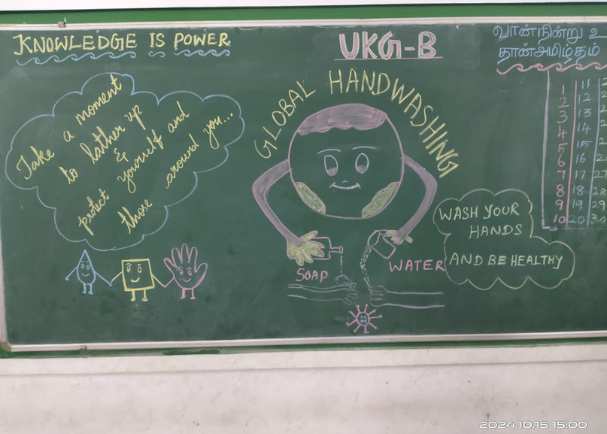 KNOWLEDGE IS POWER
UKG-B
வான்நின்று உ
தான்அமிழ்தம்
Take a moment
to lather up
&
protect yourself and
those around you...
GLOBAL HANDWASHING
WASH YOUR
HANDS
AND BE HEALTHY
SOAP
WATER
1 11
2 12
3 13
4 14
5 15
6 16
7 17 27
8 18 28
9 19 29
10 20 30
2024.10.15 15:00